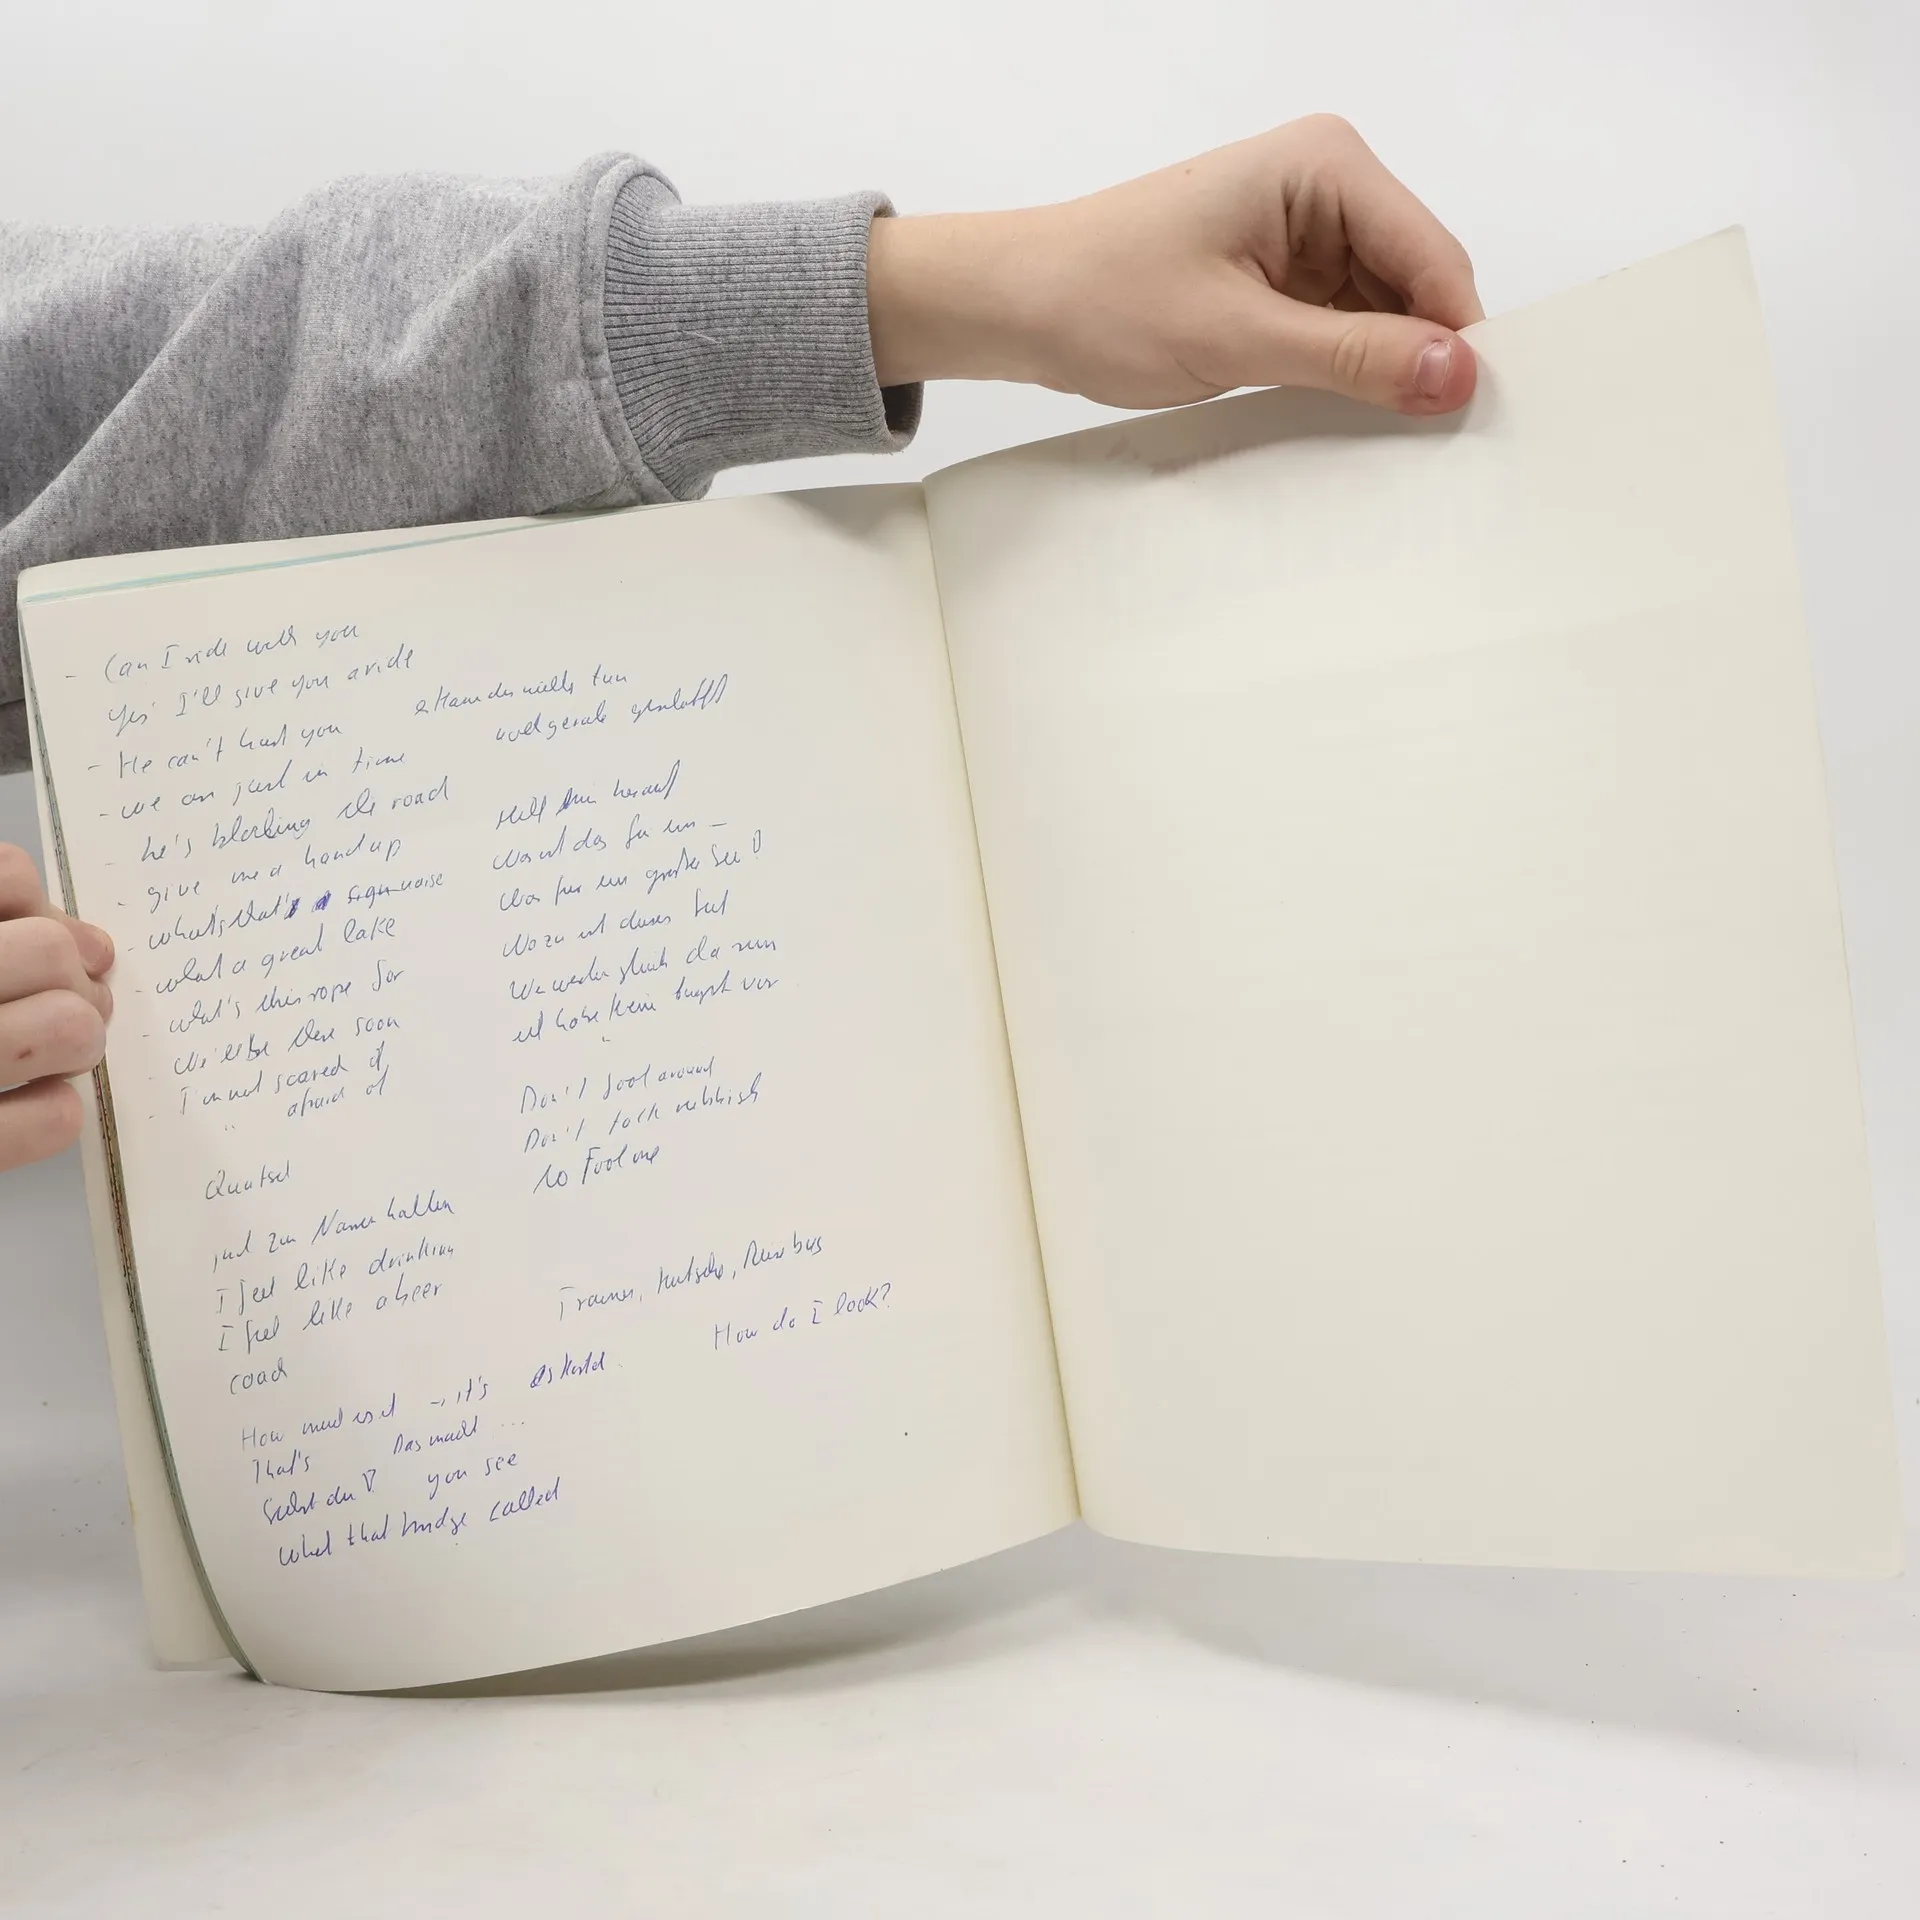 - Can I ride with you
Yes I'll give you a ride
- He can't hurt you er kann dir nichts tun
- we are just in time und gerade geschafft
he's blocking the road
- give me a hand up Hilf mir herauf
- what's that noise Was ist das für ein –
- what a great lake Was für ein großer See!
- what's this rope for Wozu ist dieses Seil
- We'll be there soon Wir werden gleich da sein
- I'm not scared of ich habe keine Angst vor
" afraid of "
Quatsch Don't fool around
Don't talk rubbish
to Fool me
jnd zum Narren halten
I feel like drinking
I feel like a beer
coach Trainer, Kutsche, Reisebus
How much is it → it's es kostet. How do I look?
That's Das macht ...
Siehst du! you see
what that bridge called